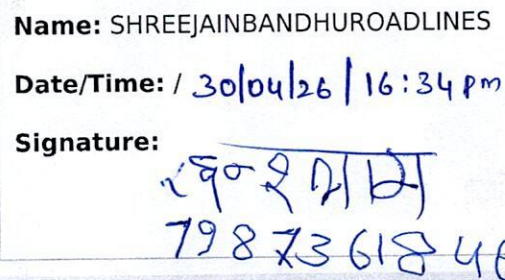 Name: SHREEJAINBANDHUROADLINES
Date/Time: / 30/04/26 / 16:34 pm
Signature:
7987361846